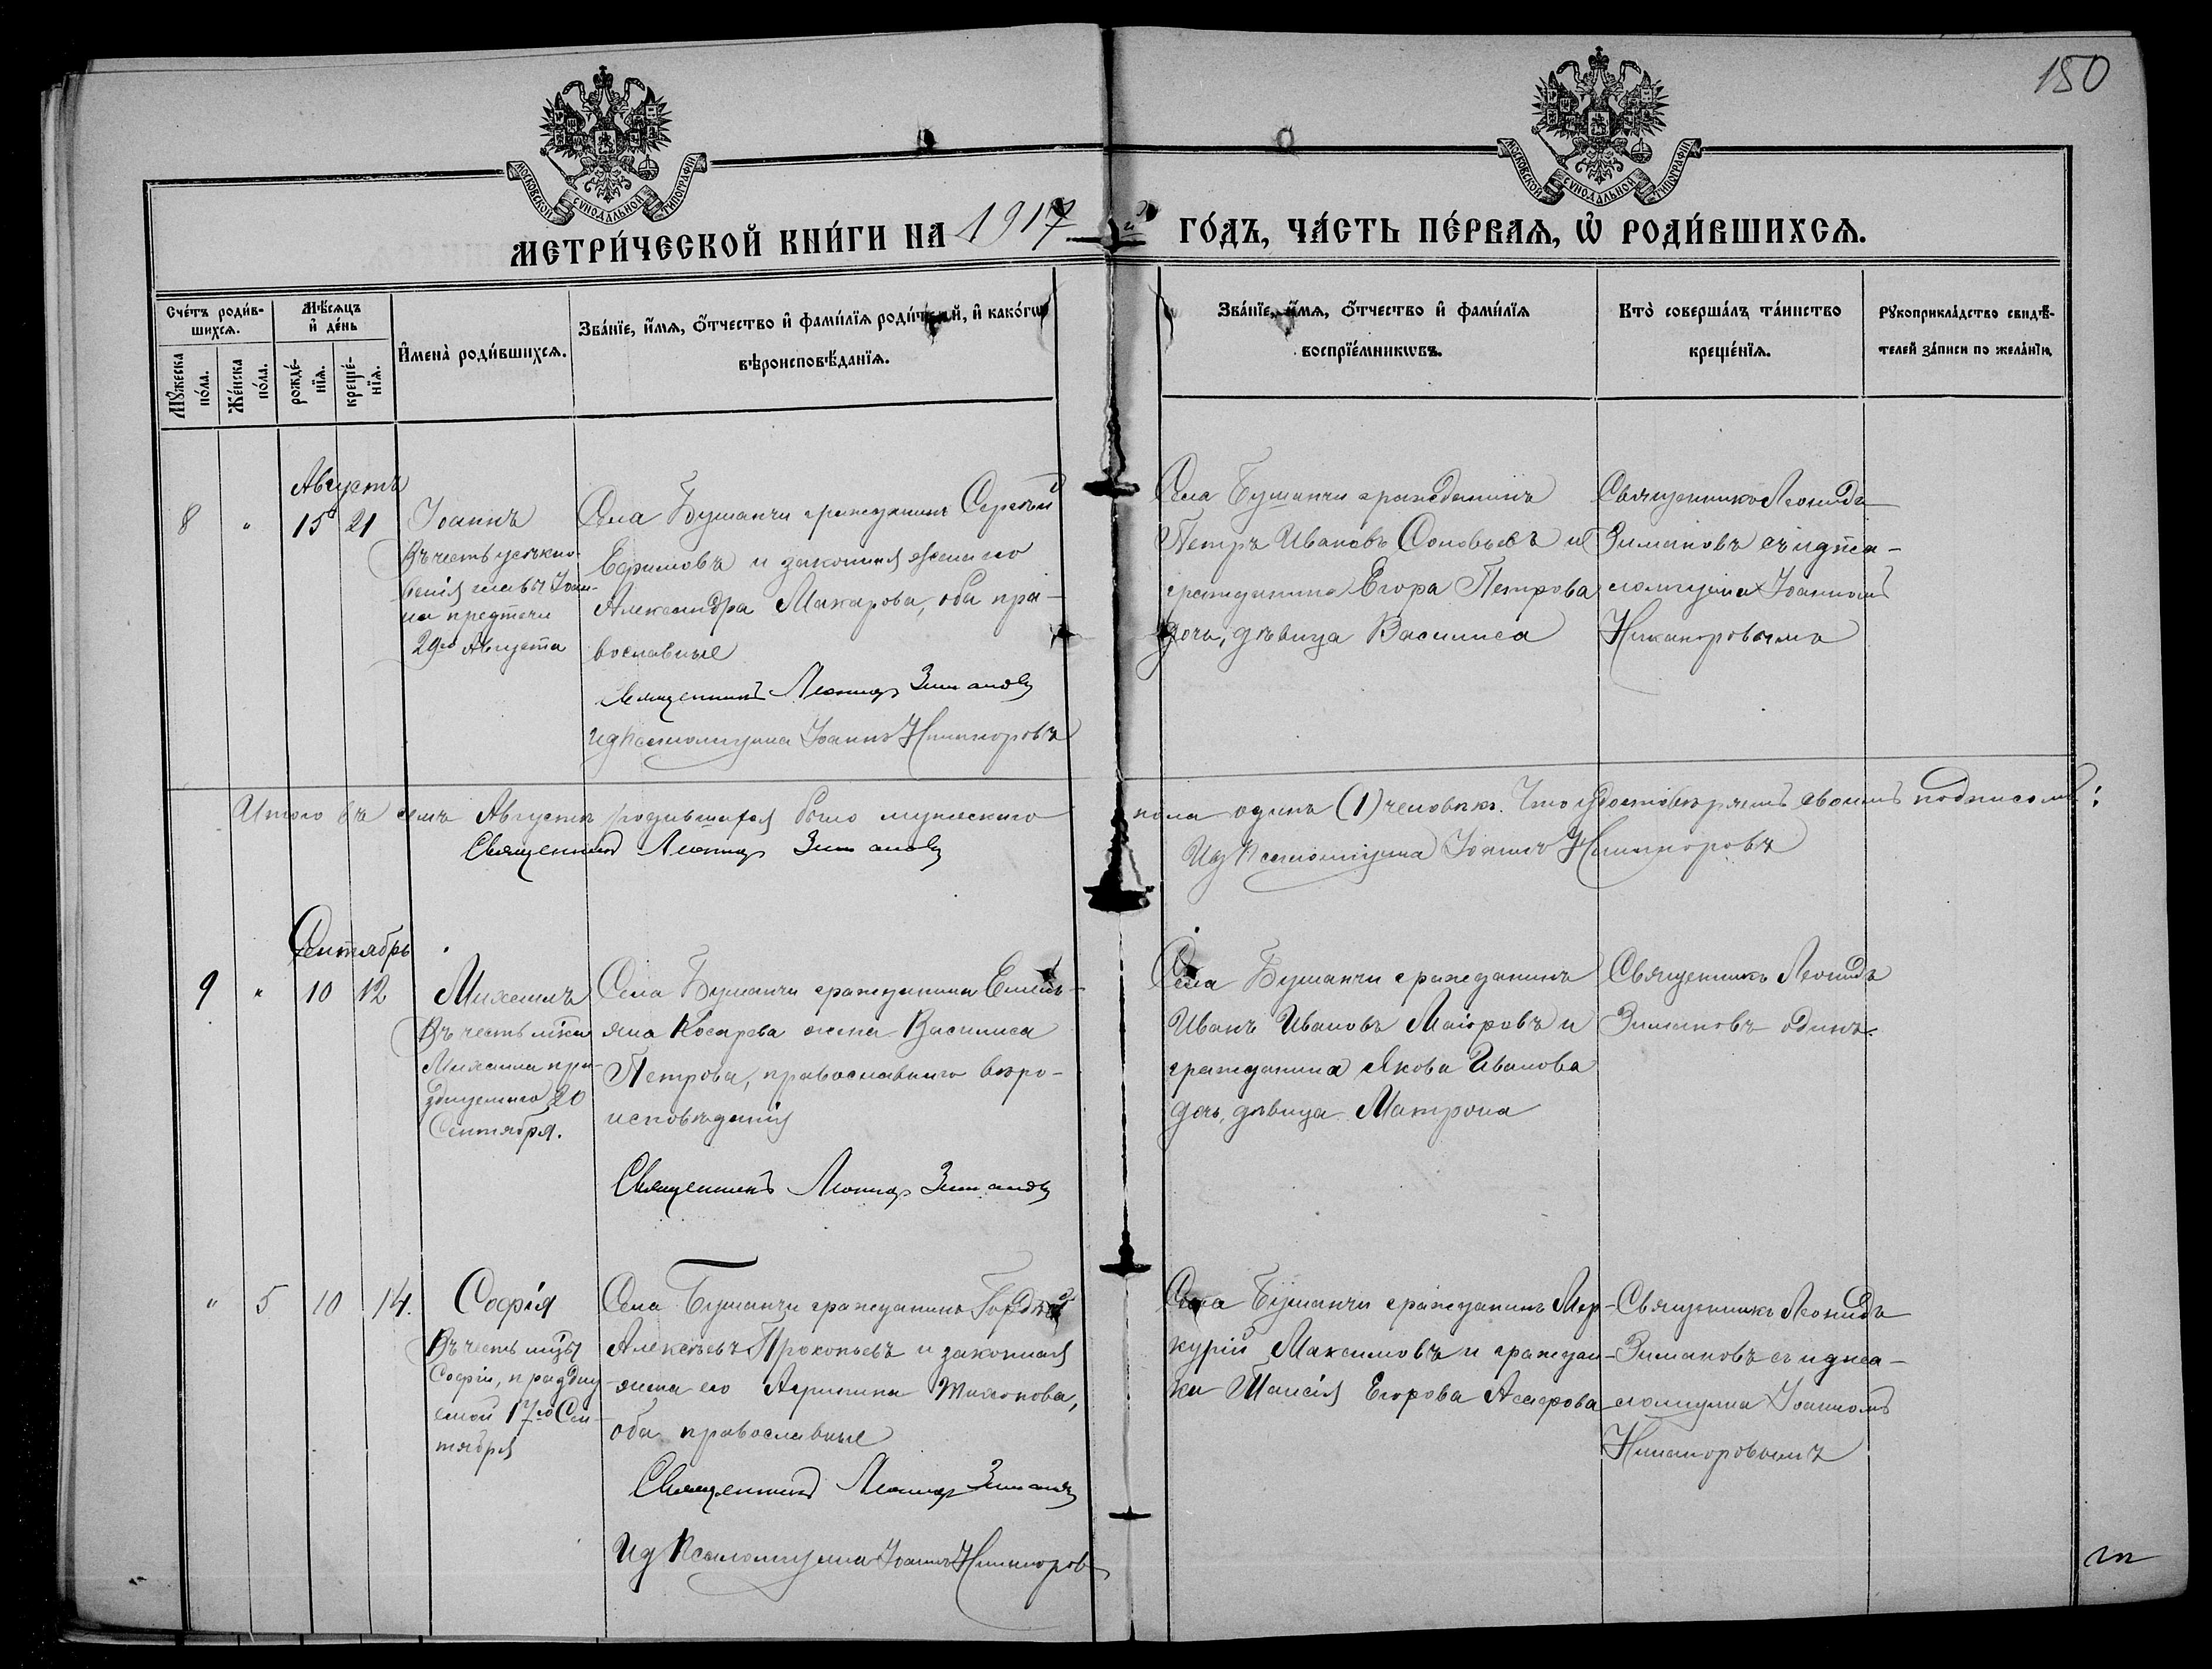 150
МОСКОВСКОЙ СУНОДАЛЬНОЙ ТИПОГРАФІИ
МОСКОВСКОЙ СУНОДАЛЬНОЙ ТИПОГРАФІИ
МЕТРИ́ЧЕСКОЙ КНИ́ГИ НА 1917 й ГО́ДЪ, ЧА́СТЬ ПЕ́РВАЯ, Ѡ РОДИ́ВШИХСЯ.
Сче́тъ роди́в-
шихся.
Мѣ́сяцъ
и҆ де́нь
Мꙋ́жеска
по́ла.
Же́нска
по́ла.
рожде́-
нїя.
креще́-
нїя.
И҆мена̀ роди́вшихся.
Зва́нїе, и҆́мя, ѻ҆́тчество и҆ фами́лїя роди́телей, и҆ како́гѡ
вѣроисповѣ́данїя.
Зва́нїе, и҆́мя, ѻ҆́тчество и҆ фами́лїя
воспрїе́мникѡвъ.
Кто̀ соверша́лъ та́инство
креще́нїя.
Рꙋкоприкла́дство свидѣ́-
телей за́писи по жела́нїю.
Августъ
8 " 15 21
Іоаннъ
Въ честь усѣкно-
венія главы Іоан-
на предтечи
29го Августа
Села Бушанчи гражданинъ Сергѣй
Ефимовъ и законная жена его
Александра Макарова, оба пра-
вославные
Священникъ Леонидъ Зимановъ
И д псаломщика Іоаннъ Никаноровъ
Села Бушанчи гражданинъ
Петръ Ивановъ Соловьевъ и
гражданина Егора Петрова
дочь, дѣвица Василиса
Священникъ Леонидъ
Зимановъ съ и д пса-
ломщика Іоанномъ
Никаноровымъ
Итого въ семъ Августѣ родившихся было мужескаго пола одинъ (1) человѣкъ. Что удостовѣряемъ своимъ подписомъ:
Священникъ Леонидъ Зимановъ
И д Псаломщика Іоаннъ Никаноровъ
Сентябрь
9 " 10 12
Михаилъ
Въ честь мчка
Михаила пра-
зднуемаго 20
Сентября.
Села Бушанчи гражданина Емель-
яна Косарева жена Василиса
Петрова, православнаго вѣро-
исповѣданія
Священникъ Леонидъ Зимановъ
Села Бушанчи гражданинъ
Иванъ Ивановъ Маіоровъ и
гражданина Якова Иванова
дочь, дѣвица Матрона
Священникъ Леонидъ
Зимановъ одинъ.
" 5 10 14.
Софія
Въ честь мцы
Софіи, праздну-
емой 17го Сен-
тября
Села Бушанчи гражданинъ Гордѣй
Алексѣевъ Прокопьевъ и законная
жена его Агрипина Тихонова,
оба православные
Священникъ Леонидъ Зимановъ
И д Псаломщика Іоаннъ Никаноровъ
Села Бушанчи гражданинъ Мер-
курій Максимовъ и граждан-
ка Таисія Егорова
Священникъ Леонидъ
Зимановъ съ и д пса-
ломщика Іоанномъ
Никаноровымъ